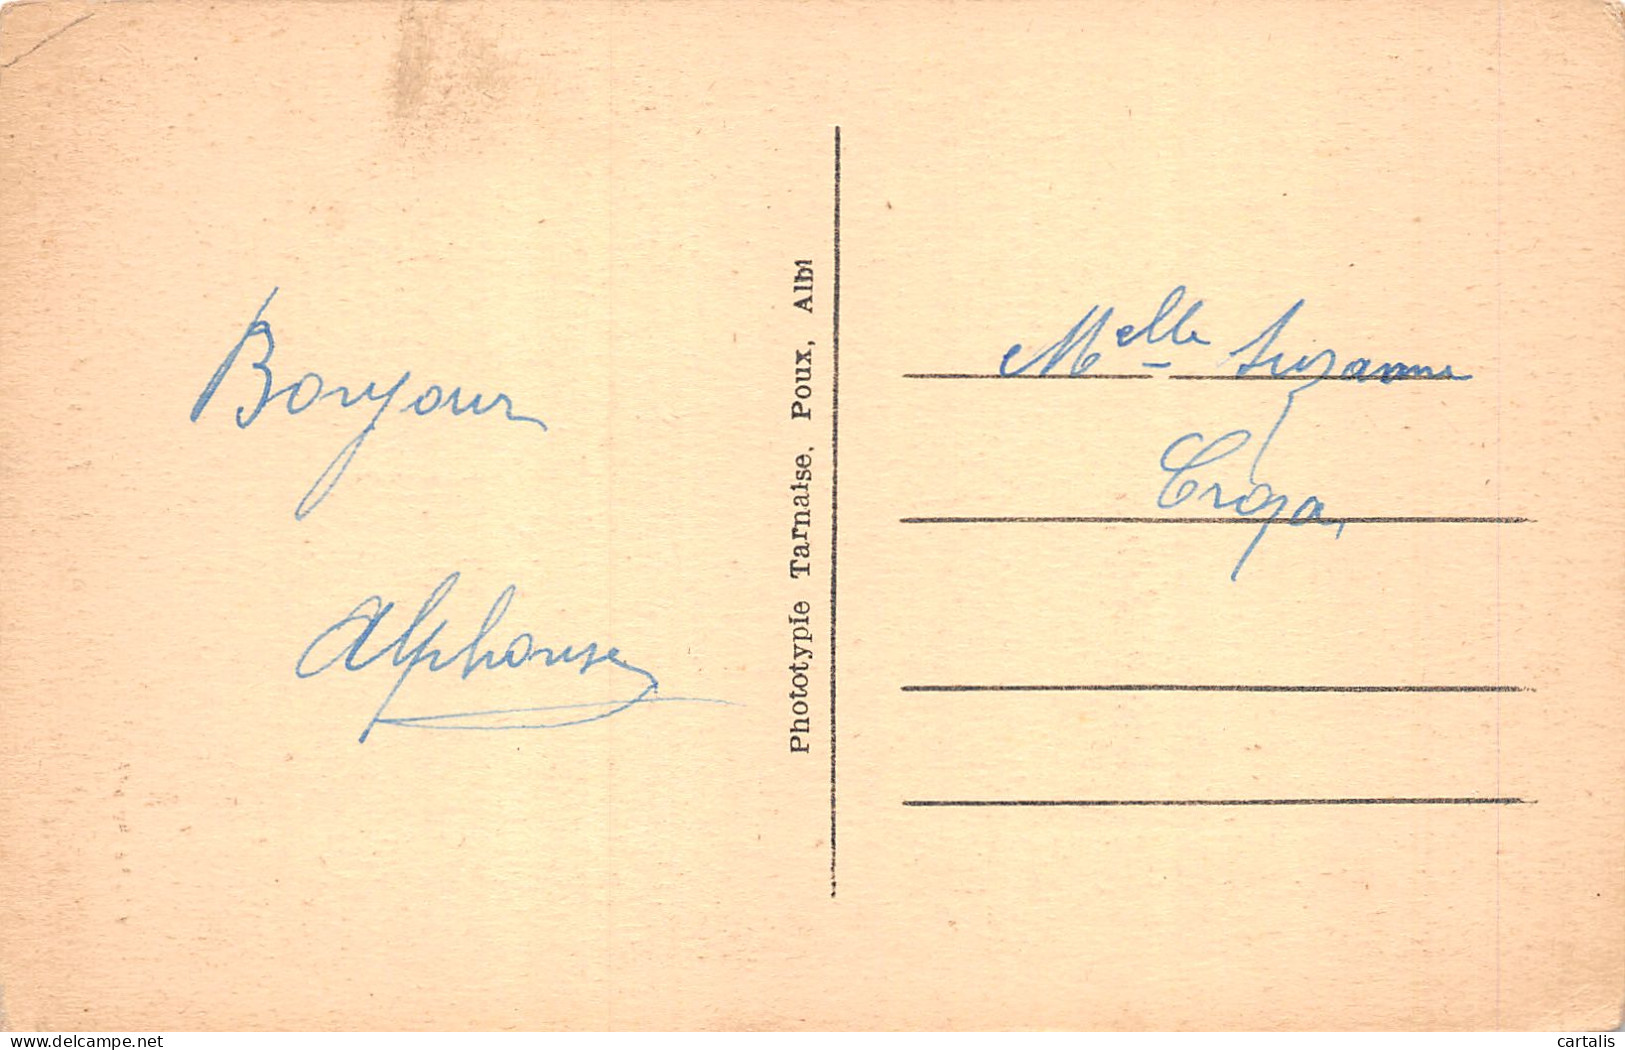 Bonjour
Alphonse
Phototypie Tarnaise, Poux, Albi
Melle Suzanne
delcampe.net
cartalis